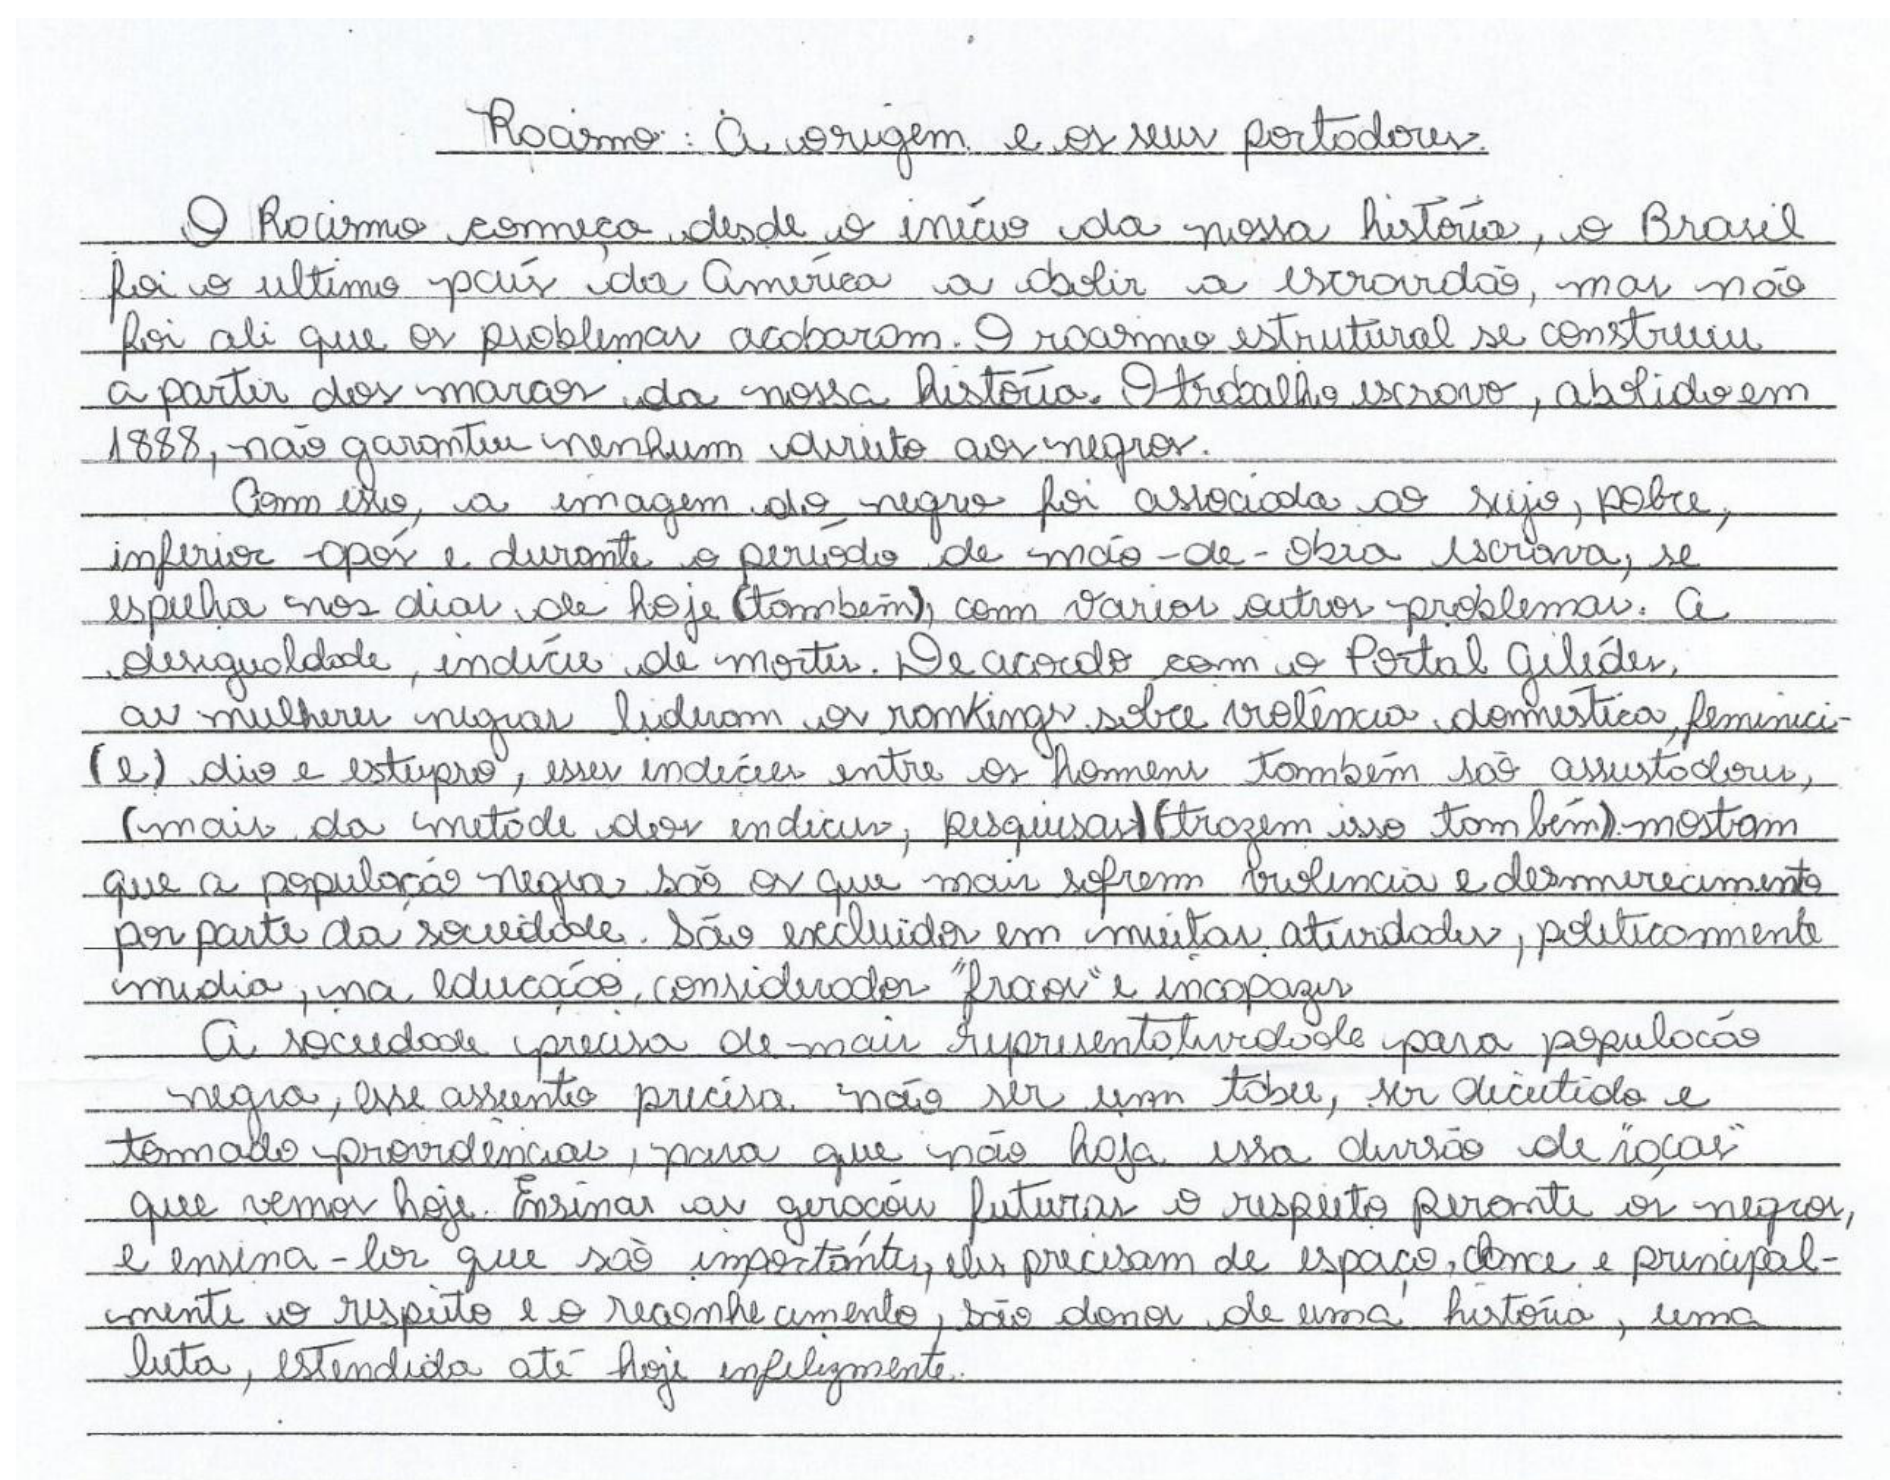 Racismo: A origem e os seus portadores.
O Racismo começa desde o início da nossa história, o Brasil
foi o ultimo país da América a abolir a escravidão, mas não
foi ali que os problemas acabaram. O racismo estrutural se construiu
a partir dos marcos da nossa história. O trabalho escravo, abolido em
1888, não garantiu nenhum direito aos negros.
Com isso, a imagem do negro foi associada ao sujo, pobre,
inferior após e durante o período de mão-de-obra escrava, se
espelha nos dias de hoje (também), com varios outros problemas. A
desigualdade, indície de mortes. De acordo com o Portal Gilédes,
as mulheres negras lideram os rankings sobre violência domestica, feminici-
(e) dio e estupro, esses indícies entre os homens também são assustadores,
(mais da metade dos indicies, pesquisas) (trazem isso também) mostram
que a população negra são os que mais sofrem violencia e desmerecimento
por parte da sociedade. São excluidos em muitas atividades, politicamente
midia, na educação, considerados "fracos" e incapazes
A sociedade precisa de mais representatividade para população
negra, esse assunto precisa não ser um tabu, ser dicutido e
tomado providências, para que não haja essa divisão de "raças"
que vemos hoje. Ensinar as gerações futuras o respeito perante os negros,
e ensina-los que são importantes, eles precisam de espaço, chance e principal-
mente o respeito e o reconhecimento, são donos de uma história, uma
luta, estendida até hoje infelizmente.